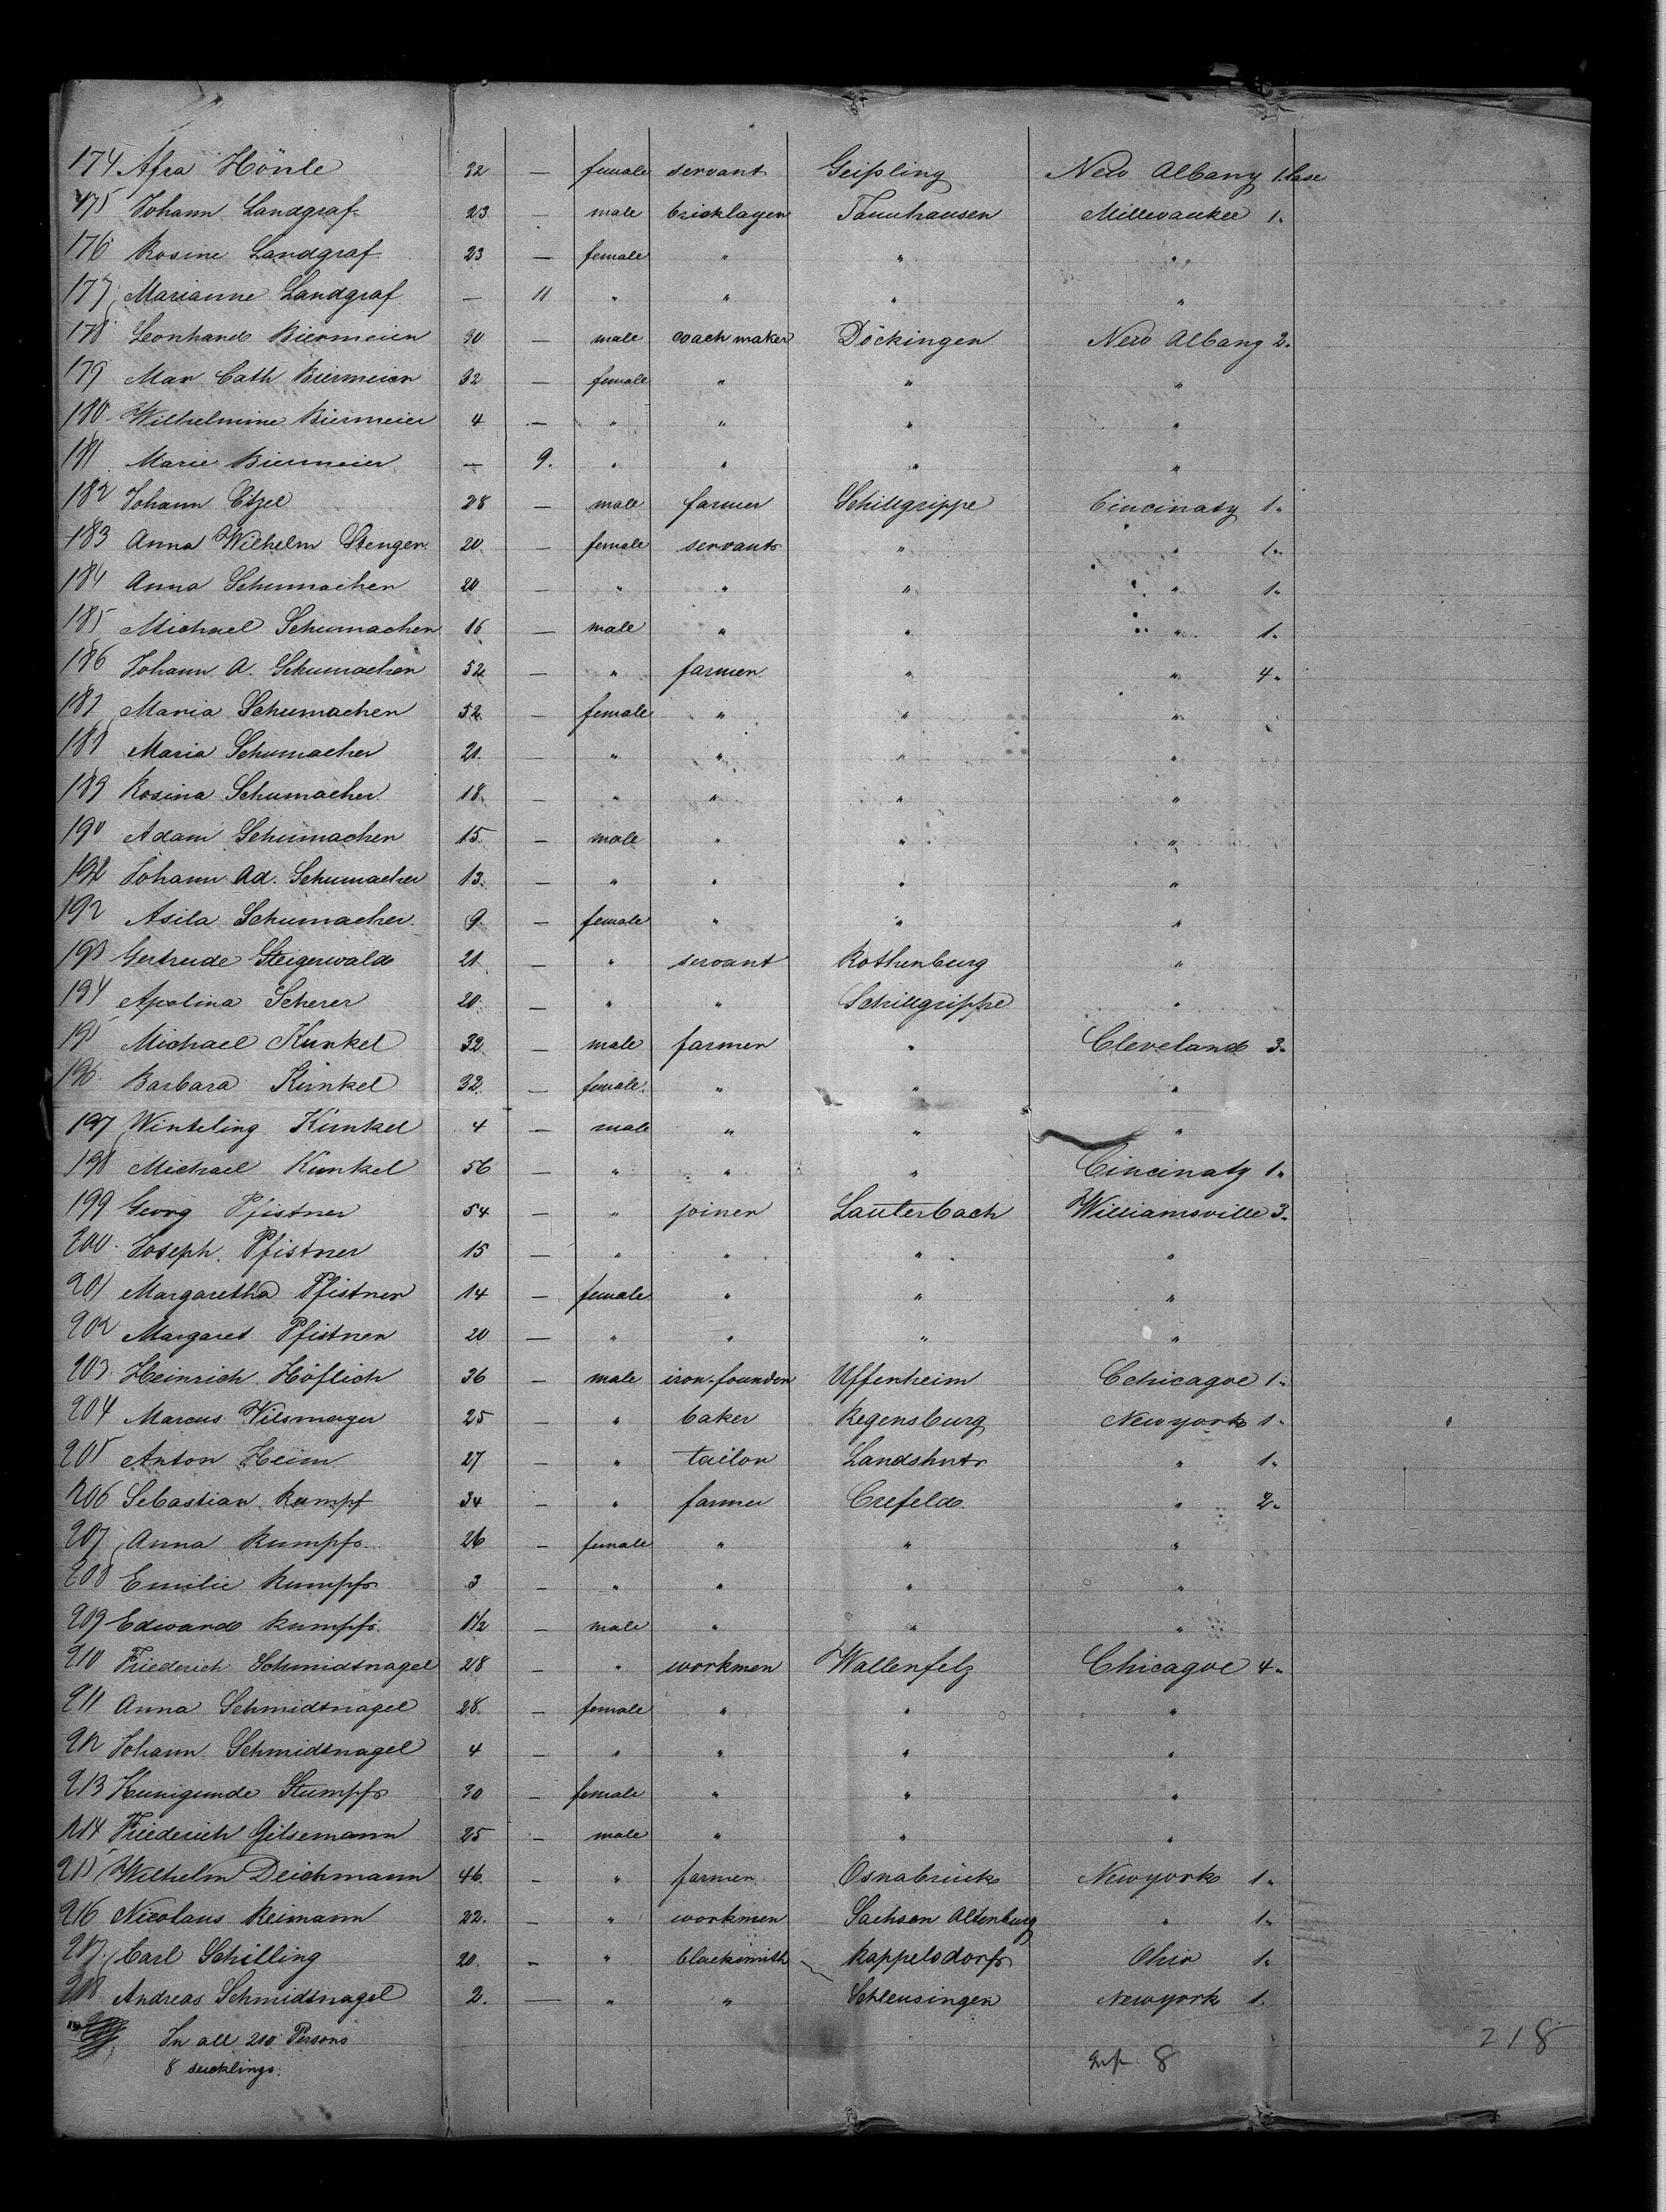 174 Afra Hönle 32 — female servant Geißling New Albany 1 Case
175 Johann Landgraf 23 — male bricklayer Tannhausen Millwaukee 1"
176 Rosine Landgraf 23 — female " " "
177 Marianne Landgraf — 11 " " " "
178 Leonhard Biermeier 30 — male coach maker Döckingen New Albany 2"
179 Mar Cath Biermeier 32 — female " " "
180 Wilhelmine Biermeier 4 — " " " "
181 Marie Biermeier — 9. " " " "
182 Johann Etzel 28 — male farmer Schillgrippe Cincinaty 1"
183 Anna Wilhelm Stenger 20 — female servant " " 1"
184 Anna Schumacher 20 — " " " " 1"
185 Michael Schumacher 16 — male " " " 1"
186 Johann A. Schumacher 52 — " farmer " " 4"
187 Maria Schumacher 52 — female " " "
188 Maria Schumacher 21 — " " " "
189 Rosina Schumacher 18 — " " " "
190 Adam Schumacher 15 — male " " "
191 Johann Ad. Schumacher 13 — " " " "
192 Asila Schumacher 9 — female " " "
193 Gertrude Steigerwald 21 — " servant Rothenburg "
194 Apolina Scherer 20 — " " Schillgrippe "
195 Michael Kunkel 32 — male farmer " Cleveland 3"
196 Barbara Kunkel 32 — female " " "
197 Winteling Kunkel 4 — male " " "
198 Michael Kunkel 56 — " " " Cincinaty 1"
199 Georg Pfistner 54 — " joiner Lauterbach Williamsville 3"
200 Joseph Pfistner 15 — " " " "
201 Margaretha Pfistner 14 — female " " "
202 Margaret Pfistner 20 — " " " "
203 Heinrich Höflich 36 — male iron-founder Uffenheim Cchicagoe 1"
204 Marcus Vilsmayer 25 — " baker Regensburg Newyork 1"
205 Anton Heim 27 — " tailor Landshut " 1"
206 Sebastian Rumpf 34 — " farmer Crefeld " 2"
207 Anna Rumpf 26 — female " " "
208 Emilie Rumpf 3 — " " " "
209 Edward Rumpf 1 1/2 — male " " "
210 Friederich Schmidtnagel 28 — " workmen Wallenfelz Chicagoe 4"
211 Anna Schmidtnagel 28 — female " " "
212 Johann Schmidtnagel 4 — " " " "
213 Kunigunde Stumpf 30 — female " " "
214 Friederich Gilsemann 25 — male " " "
215 Wilhelm Deichmann 46 — " farmer Osnabrück Newyork 1"
216 Nicolaus Reimann 22. — " workmen Sachsen Altenburg " 1"
217. Carl Schilling 20. — " blacksmith Rappelsdorf Ohio 1"
218 Andreas Schmidtnagel 2. — " " Schleusingen Newyork 1.
In all 210 Persons
8 sucklings.
8
218